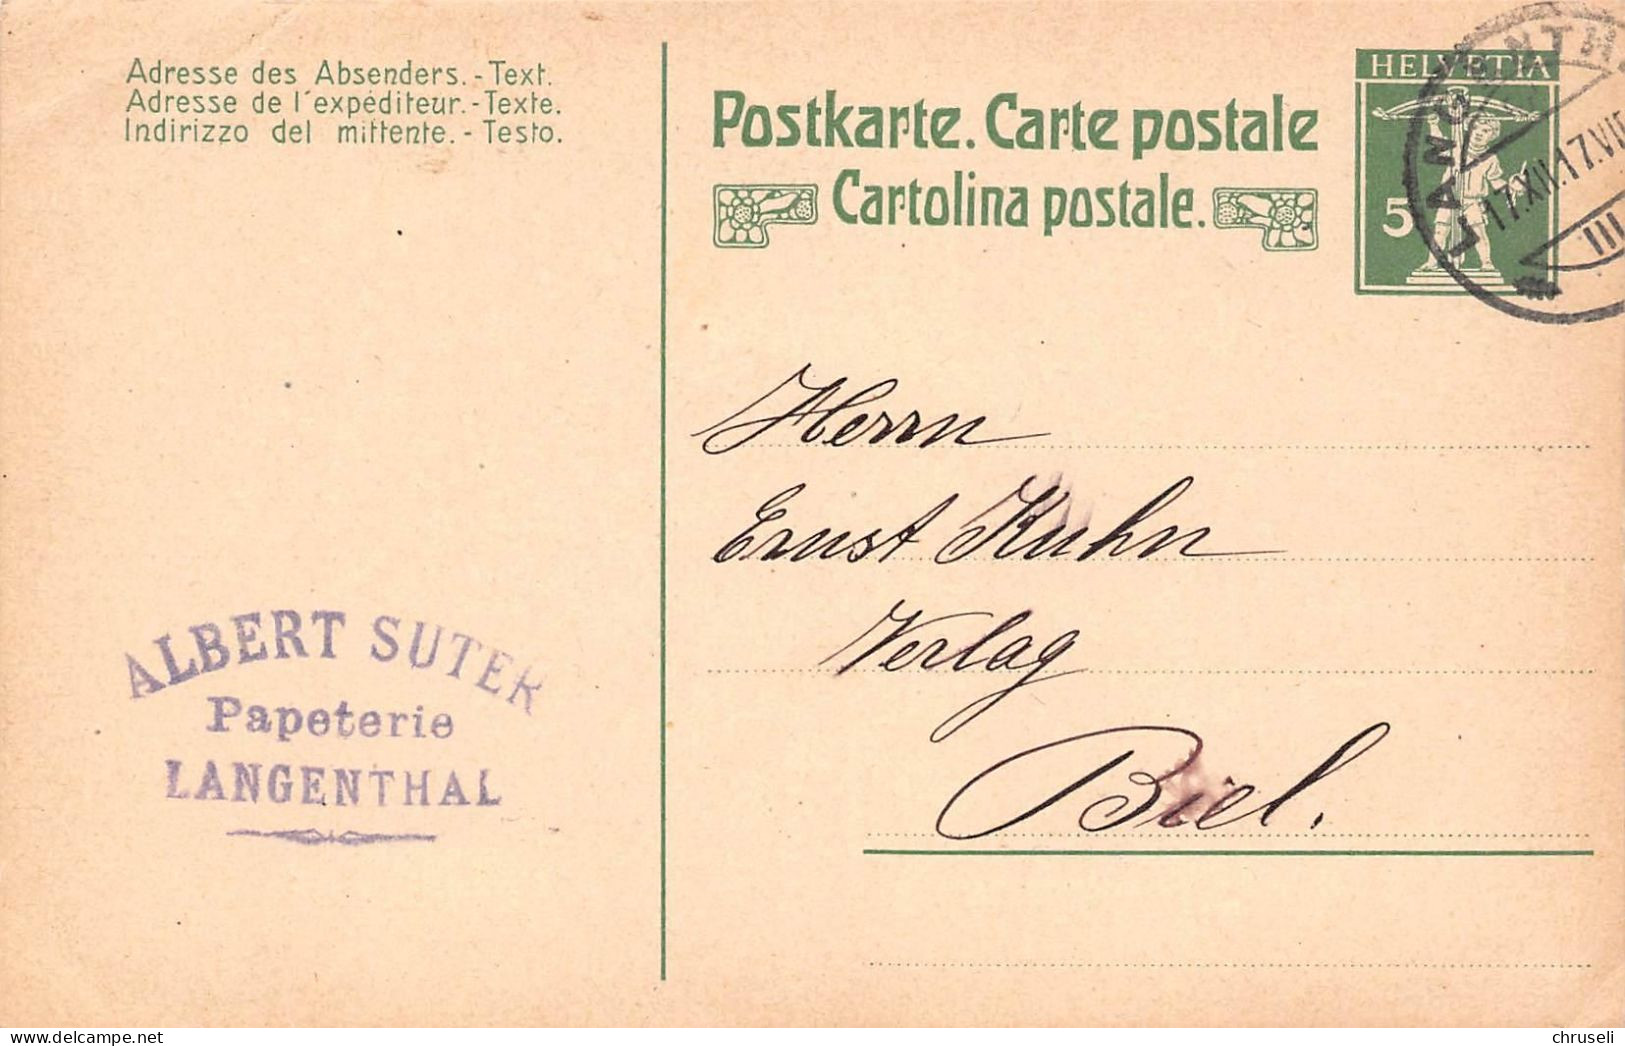 Adresse des Absenders. - Text.
Adresse de l'expéditeur. - Texte.
Indirizzo del mittente. - Testo.
Postkarte. Carte postale
Cartolina postale.
HELVETIA
5
17.XII.17.VII
III
Herrn
Ernst Kuhn
Verlag
Biel.
ALBERT SUTER
Papeterie
LANGENTHAL
www.delcampe.net
chruseli